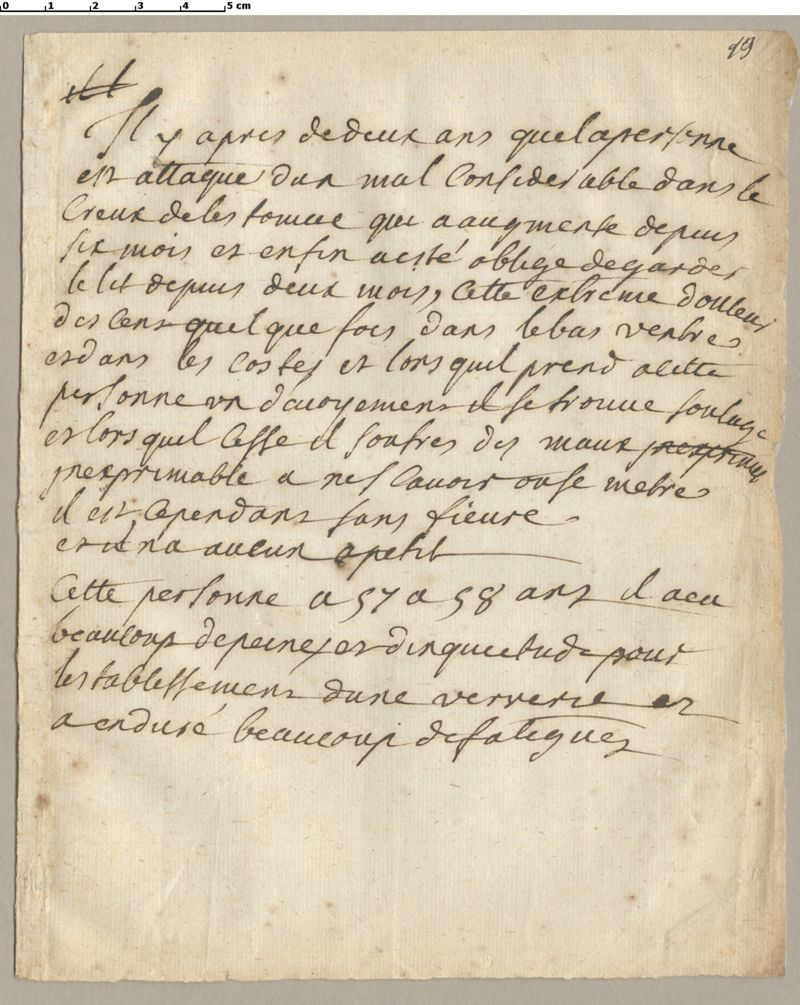 0 1 2 3 4 5 cm
99
Il y apres de deux ans que la personne
est attaqué dun mal Considerable dans le
Creux de lestomac qui a augmente depuis
six mois et enfin a esté obligé de garder
le lit depuis deux mois, Cette extreme douleur
descent quelque fois dans le bas ventre
et dans les Costes et lors quil prend a cette
personne un devoyement il se trouve soulagé
et lors quil Cesse il soufre des maux
inexprimable a ne scavoir ou se metre
il est Cependant sans fievre
et il na aucun apetit
Cette personne a 57 a 58 ans il a eu
beaucoup de peine et dinquietude pour
lestablissement dune verrerie et
a enduré beaucoup de fatigues